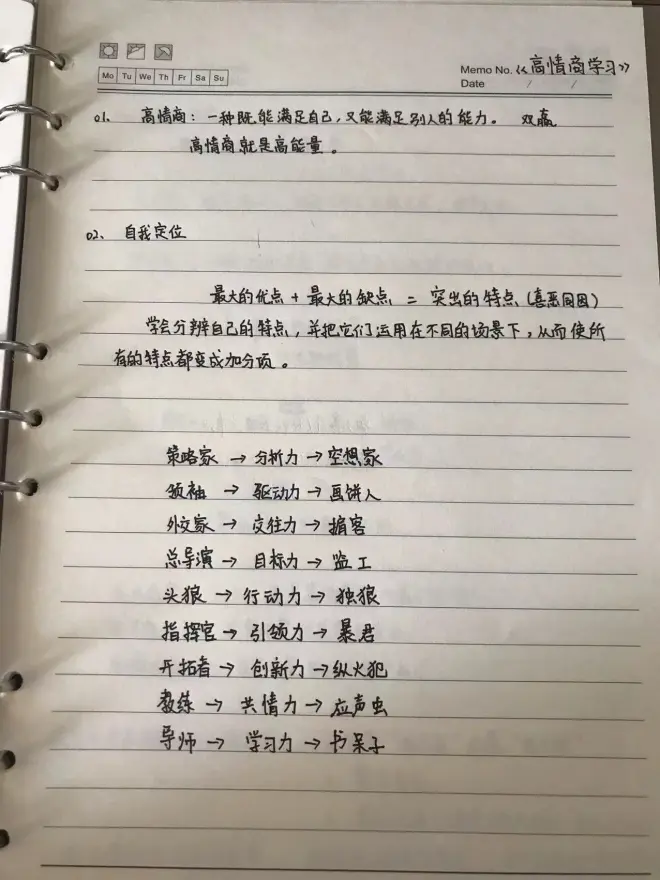 Mo Tu We Th Fr Sa Su
Memo No. 《高情商学习》
Date / /
01. 高情商：一种既能满足自己，又能满足别人的能力。 双赢
高情商就是高能量。
02. 自我定位
最大的优点 + 最大的缺点 = 突出的特点（喜恶同因）
学会分辨自己的特点，并把它们运用在不同的场景下，从而使所
有的特点都变成加分项。
策略家 → 分析力 → 空想家
领袖 → 驱动力 → 画饼人
外交家 → 交往力 → 掮客
总导演 → 目标力 → 监工
头狼 → 行动力 → 独狼
指挥官 → 引领力 → 暴君
开拓者 → 创新力 → 纵火犯
教练 → 共情力 → 应声虫
导师 → 学习力 → 书呆子